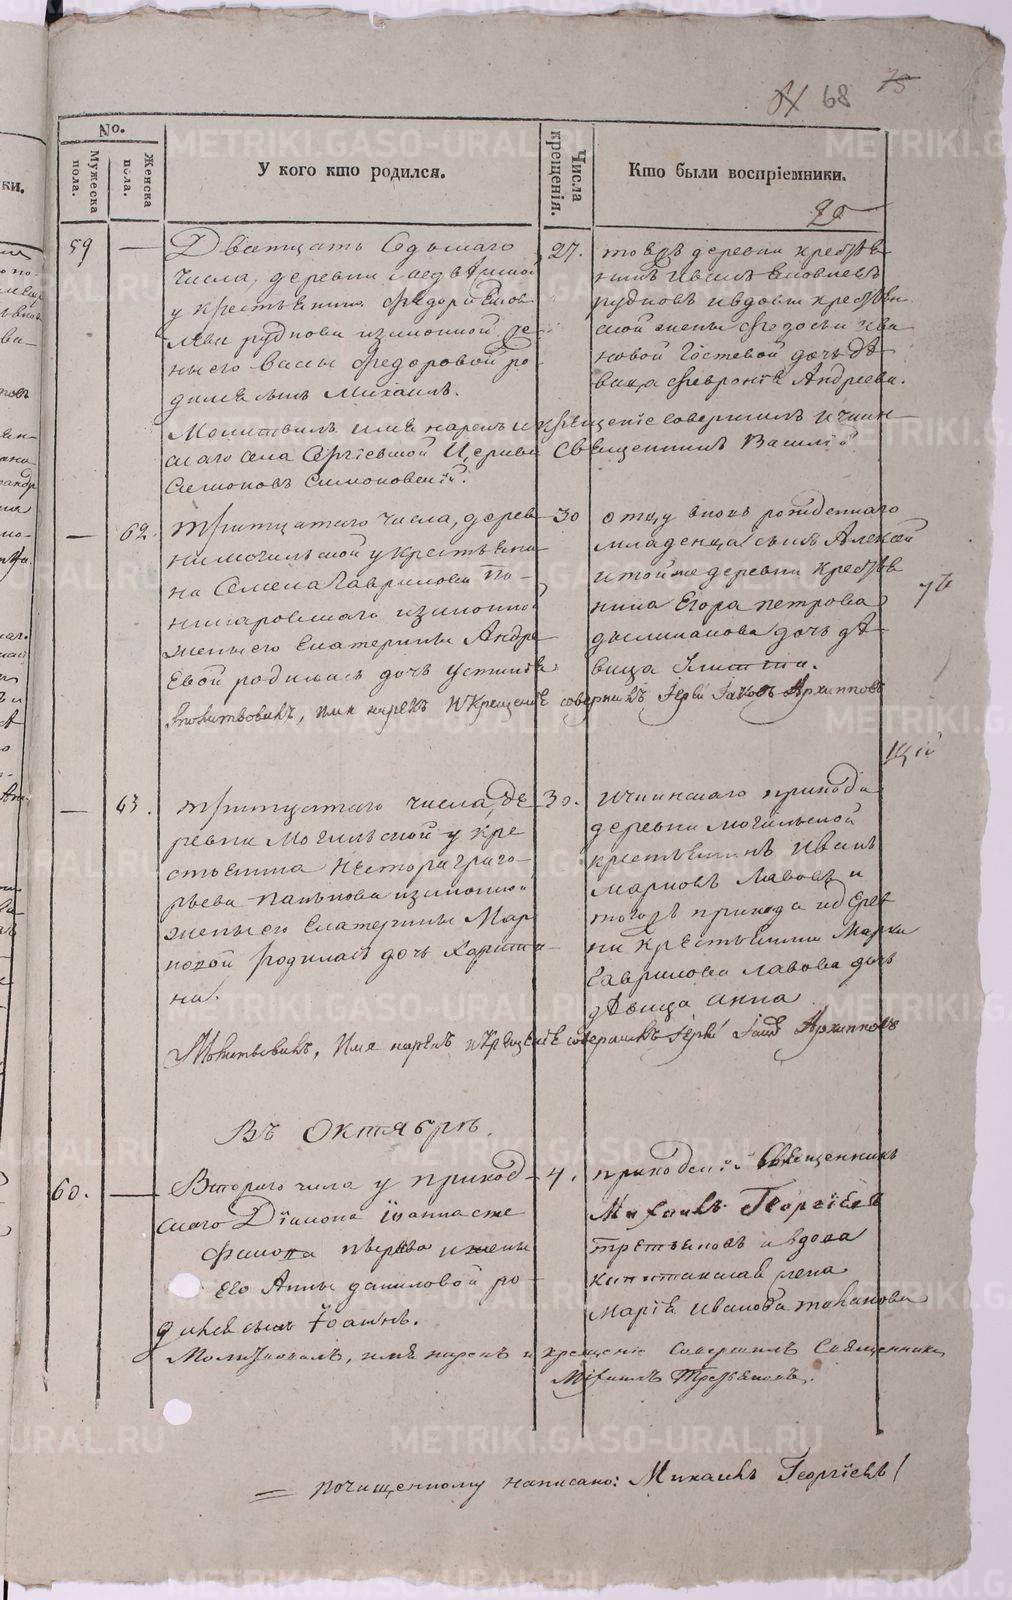 68 75
No.
Мужеска пола.
Женска пола.
У кого кто родился.
Числа крещенія.
Кто были воспріемники.
59 — Дватцать Седьмаго
числа, деревни
у крестьянина Федора
Рудкова изаконной же-
ны его Васы Федоровой ро-
дился сынъ Михаилъ.
27. тояжъ деревни крестья
нинъ Иванъ Яковлевъ
Рудковъ ивдовы крестьян
ской жены Федосьи Ива
новой Гостевой дочь дѣ
вица Февронія Андреева.
Молитвилъ имя нарекъ и крещеніе совершилъ
скаго села Сергіевской Церкви Священникъ Василій
Симоновъ Симоновскій.
— 62. тритцатаго числа, дерев
ни Могильской у крестьяни
на Семена Гаврилова По-
изаконной
жены его Екатерины Андре
евой родилась дочь Устинья
30 отцу вновь рожденнаго
младенца сынъ Алексей
и тойже деревни крестья
нина Егора петрова
дочь дѣ
вица
Молитвовилъ, имя нарекъ и Крещеніе совершилъ Іерей Іаковъ Архиповъ
— 63. тритцатаго числа, де
ревни Могильской у кре
стьянина Нестора Григо
рьева изаконной
жены его Екатерины Мар
ковой родилась дочь Харити
на.
30. прихода
деревни могильской
крестьянинъ Иванъ
Марковъ Лавовъ и
тогожъ прихода и дерев
ни Крестьянина Марка
Гаврилова Лавова дочь
дѣвица Анна
Молитвовилъ, Имя нарекъ и Крещеніе совершилъ Іерей Іаковъ Архиповъ
Въ Октябрѣ.
60. — Втораго числа у приход
скаго Діакона Іоанна Сте
фанова первова и жены
Его Анны даниловой ро
дился сынъ Іоаннъ.
4. приходскій Священникъ
Михаилъ Георгіевъ
Третьяковъ и вдова
жена
Марія Иванова
Молитвовалъ, имя нарекъ и крещеніе совершилъ Священникъ
Михаилъ Третьяковъ.
= почищенному написано: Михаилъ Георгіевъ
METRIKI.GASO-URAL.RU